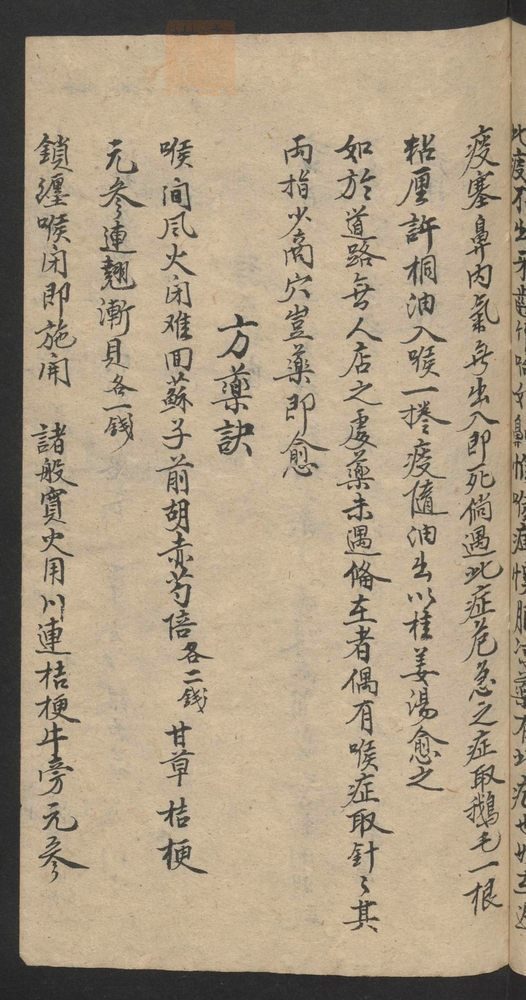 疫塞鼻内氣無出入即死倘遇此症危急之症取鵝毛一根
粘厘許桐油入喉一捲疫隨油出以桂姜湯愈之
如於道路無人店之處藥未遇偹在者偶有喉症取針〻其
両指少商穴豈藥即愈
方藥訣
喉间風火闭难回蘇子前胡赤芍倍各二錢 甘草桔梗
元参連翹漸貝各一錢
鎖纏喉闭即施開 諸般實火用川連桔梗牛旁元参